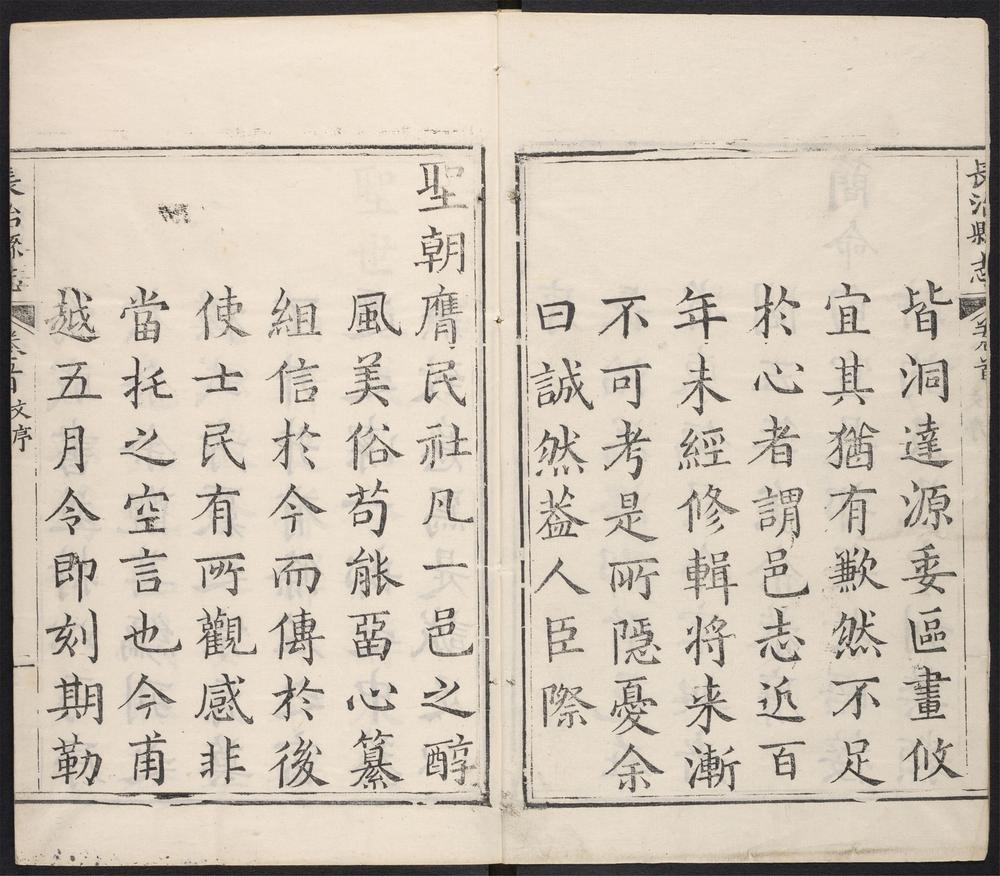 長治縣志 卷首
皆洞達源委區畫攸
宜其猶有歉然不足
於心者謂邑志近百
年未經修輯将来漸
不可考是所隱憂余
曰誠然葢人臣際
聖朝膺民社凡一邑之醇
風美俗苟能畱心纂
組信於今而傳於後
使士民有所觀感非
當托之空言也今甫
越五月令即刻期勒
長治縣志 卷首 文序 一